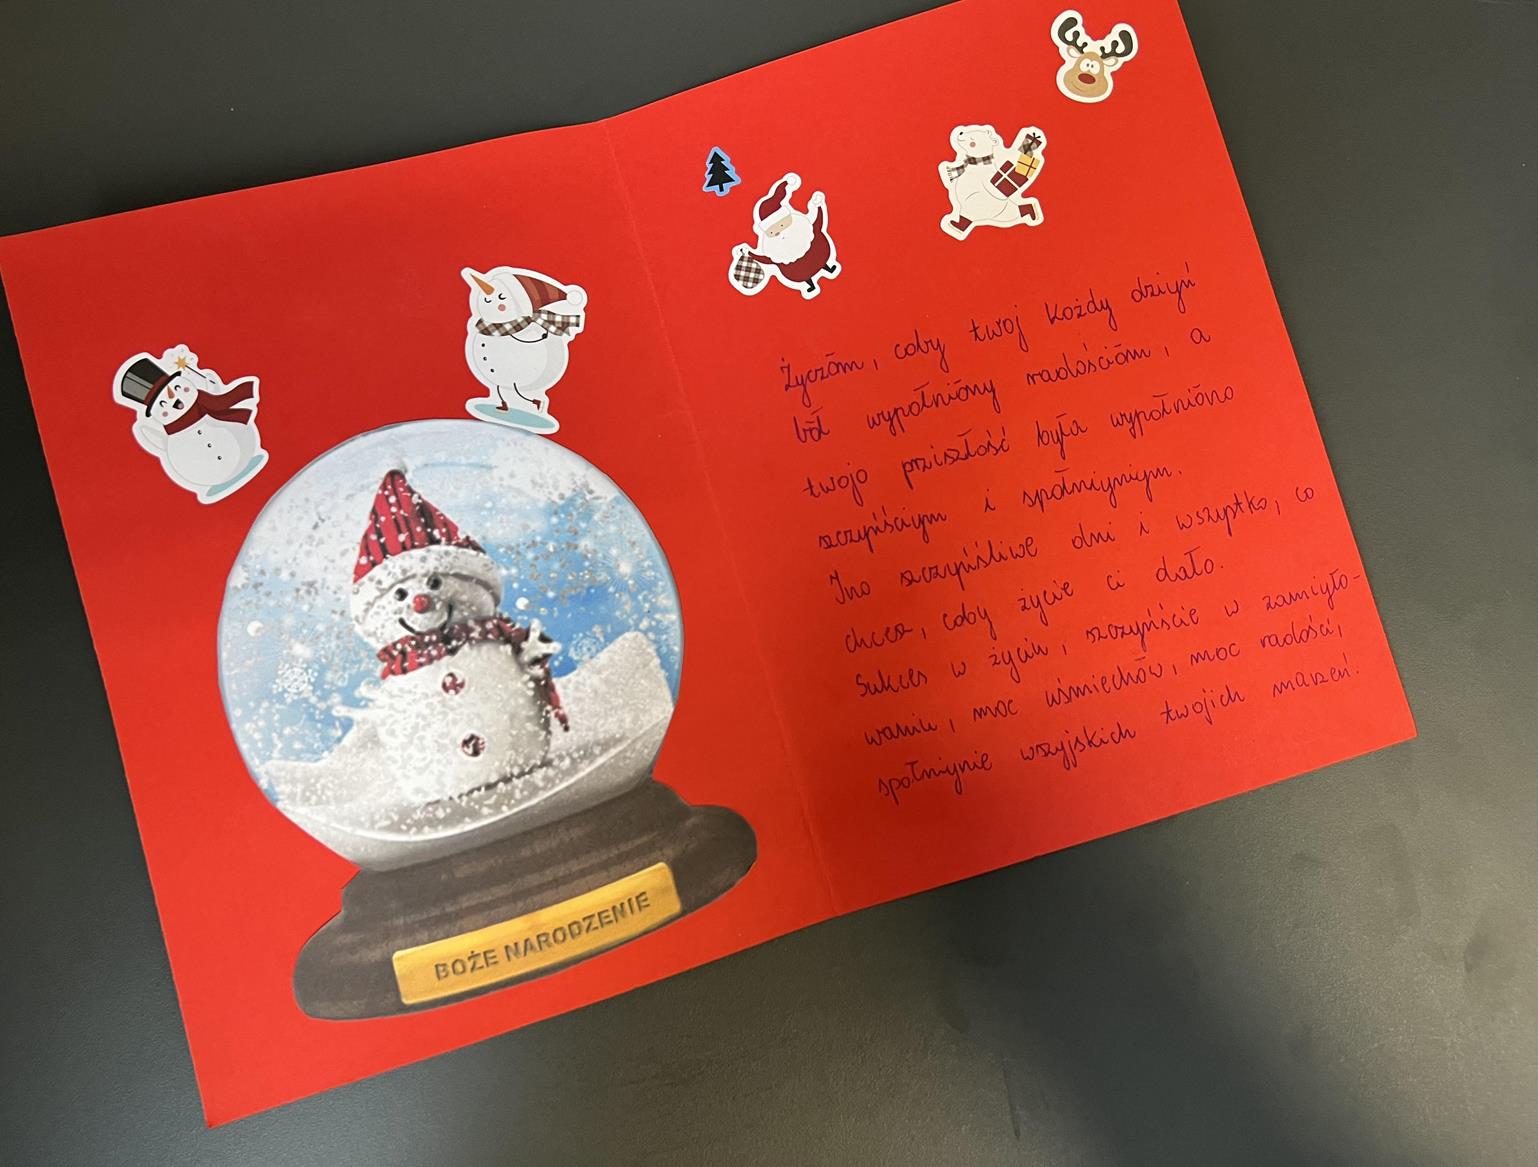 BOŻE NARODZENIE
Życzōm, coby twoj kożdy dziyń
bōł wypołniōny radościōm, a
twojo prziszłość była wypołniōno
szczyńściym i społniyniym.
Ino szczyńśliwe dni i wszyptko, co
chcesz, coby życie ci dało.
Sukces w życiu, szczyńście w zamiyło-
waniu, moc uśmiechōw, moc radości,
społniynie wszyjskich twojich marzeń.